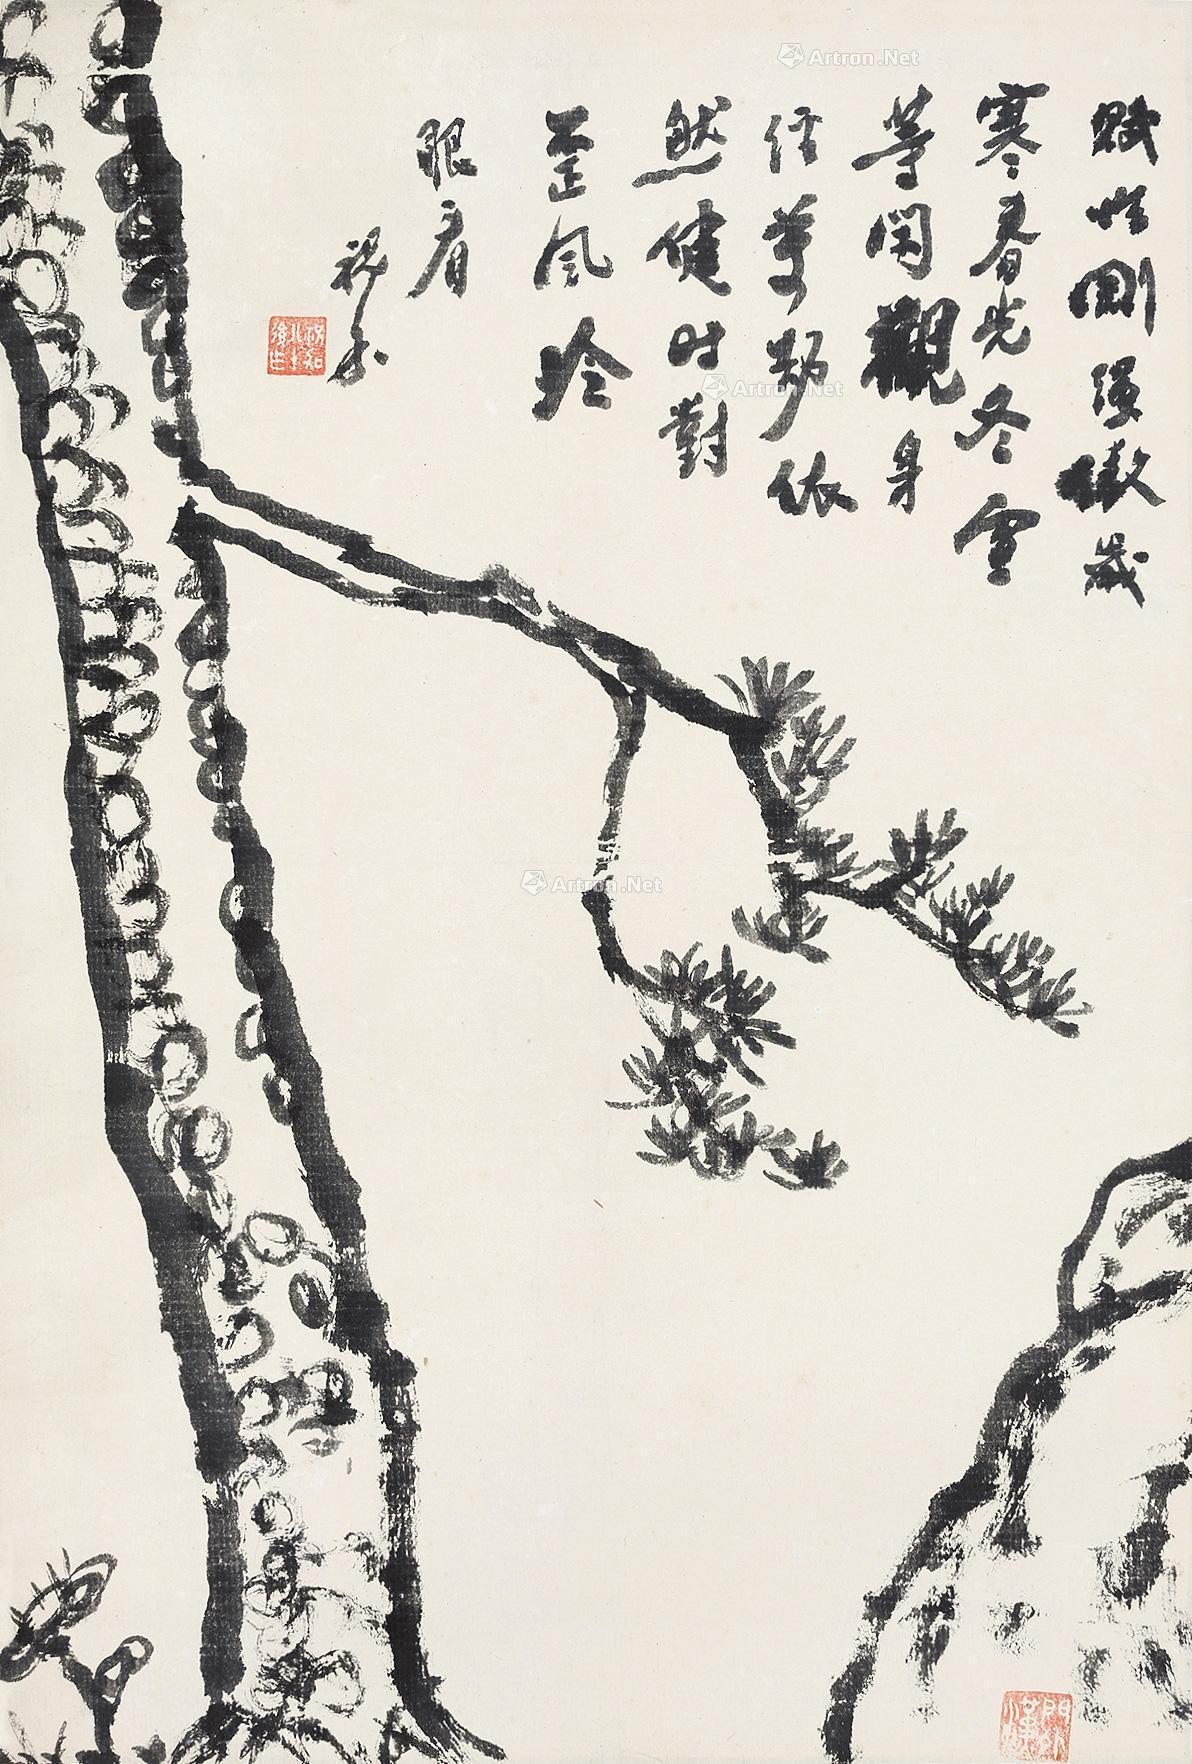 賦性剛强傲歲
寒春光冬雪
等闲觀身
经萬劫依
然健时對
歪風冷
眼看
祝
Artron.Net
Artron.Net
Artron.Net